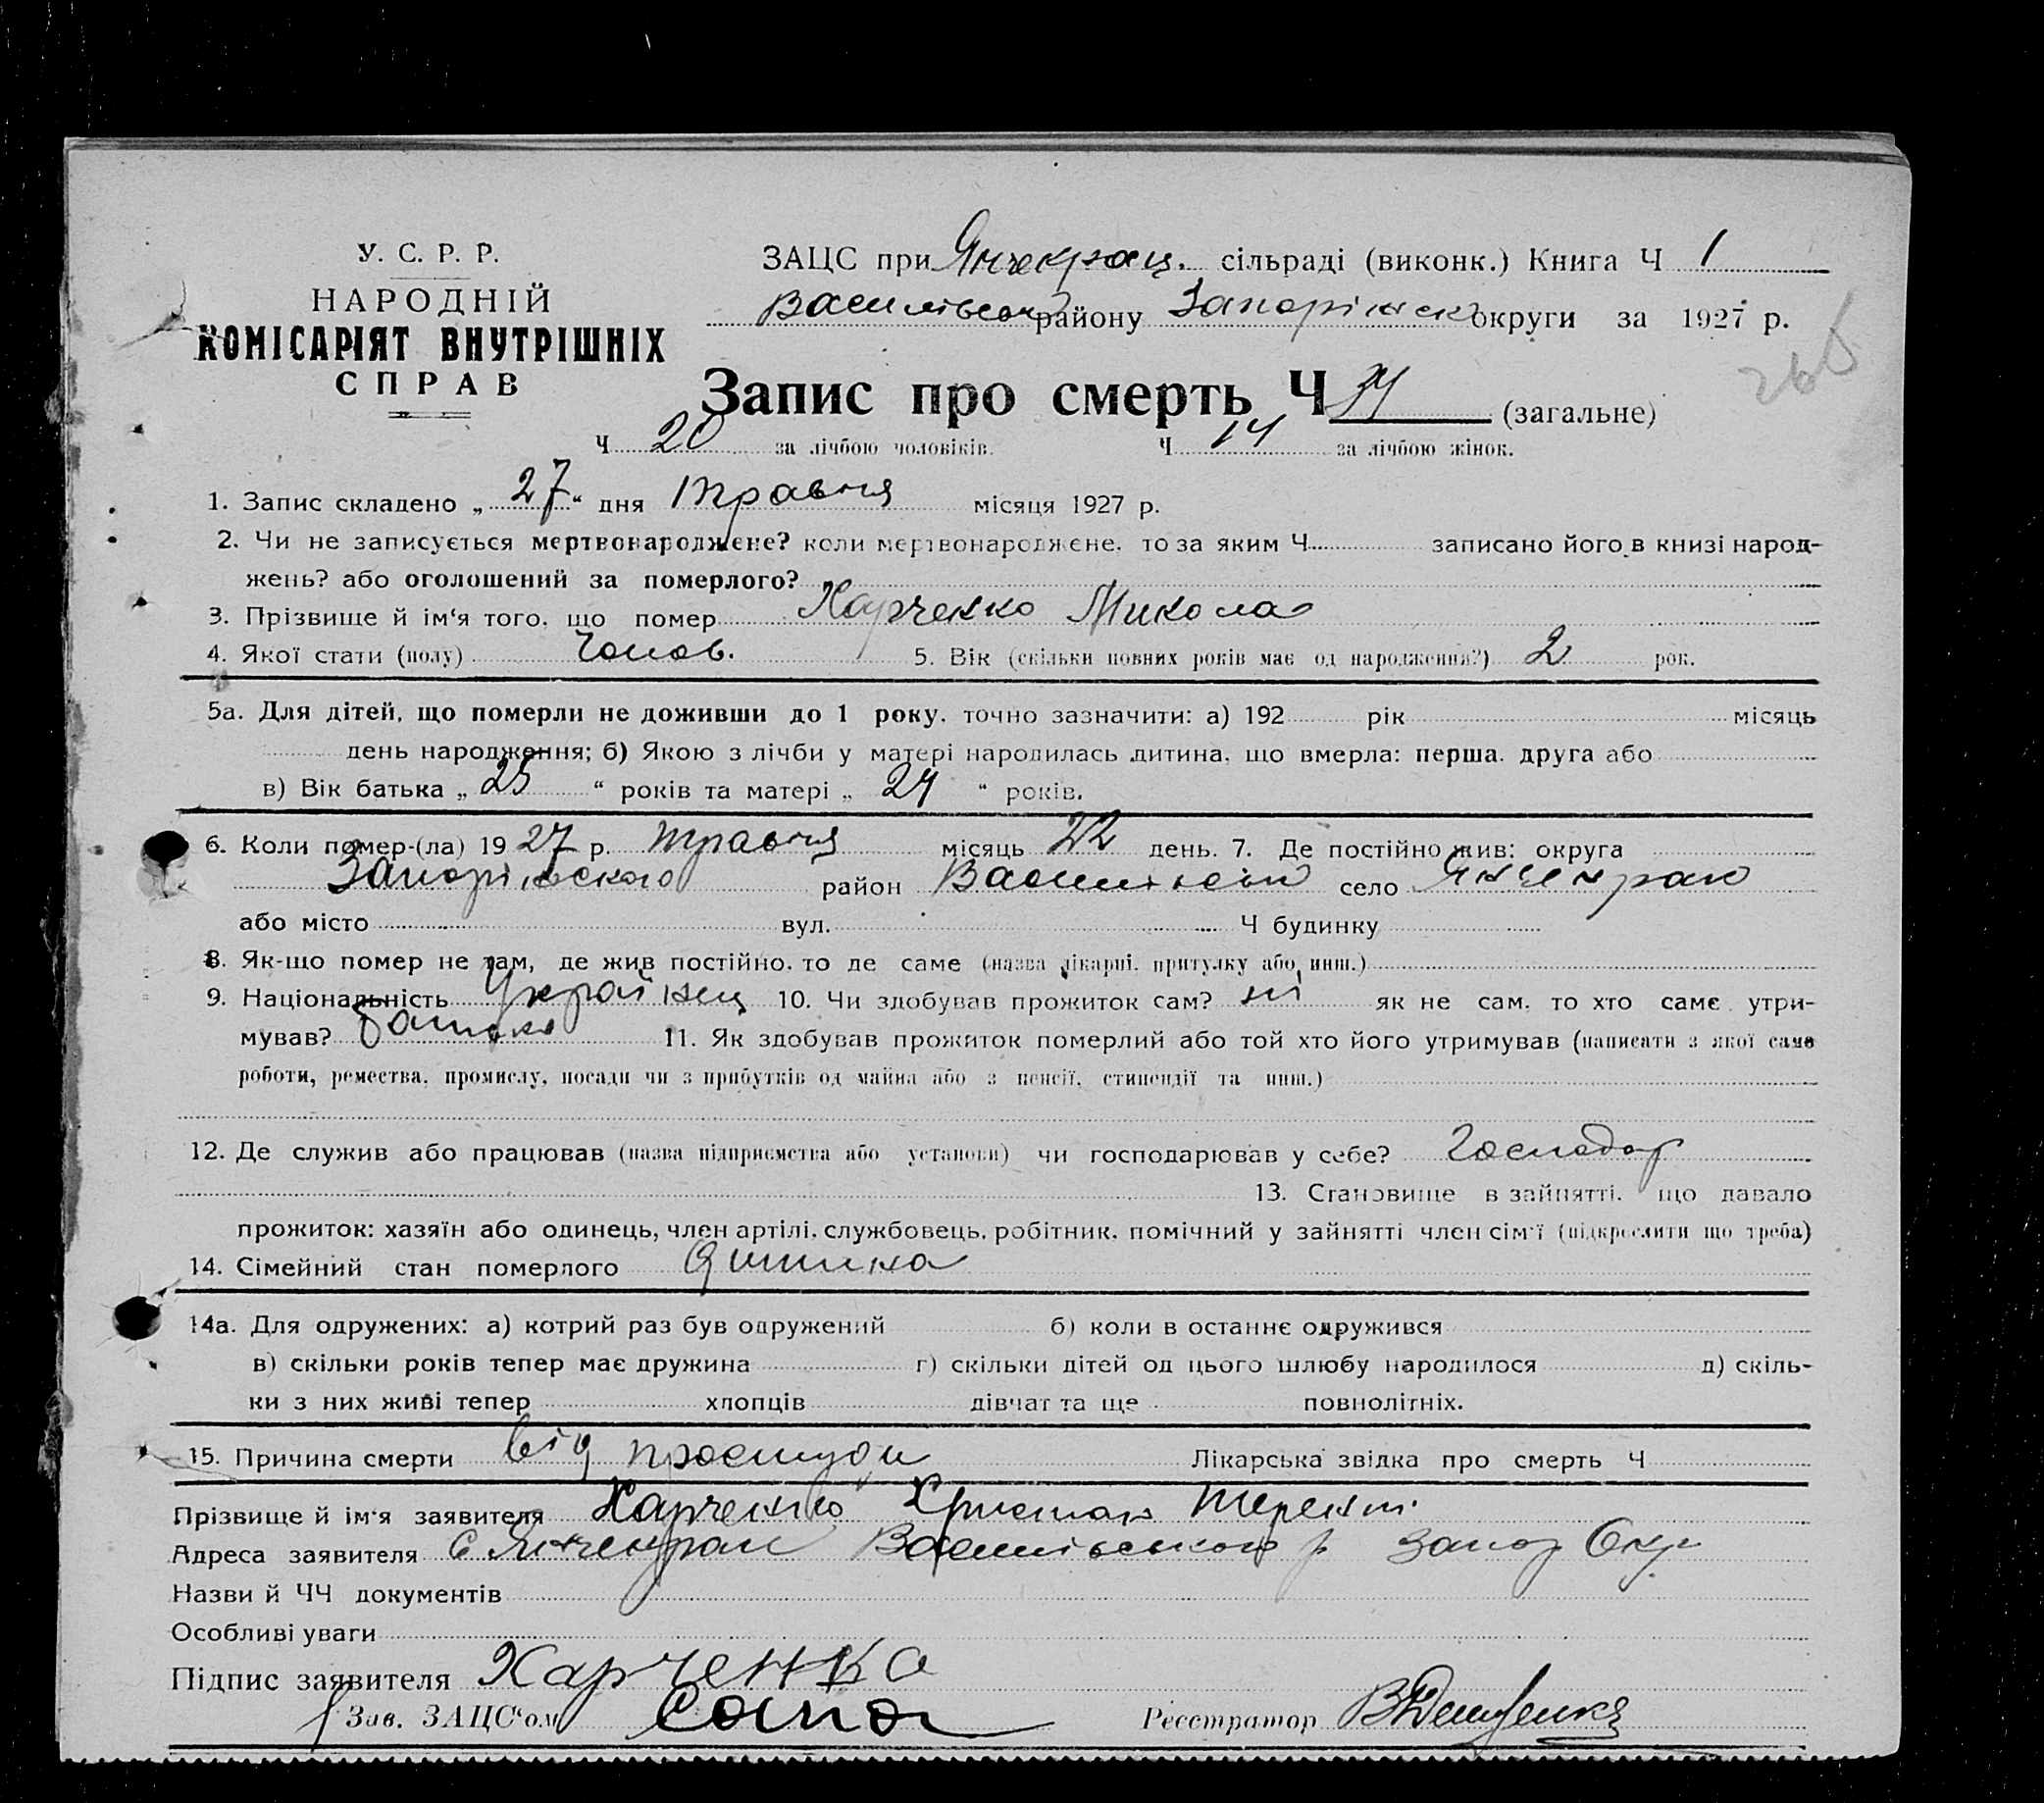 У. С. Р. Р.
НАРОДНІЙ
КОМІСАРІЯТ ВНУТРІШНІХ
СПРАВ
ЗАЦС при Янчекрац. сільраді (виконк.) Книга Ч 1
Василівськ району Запоріжськ округи за 1927 р.
Запис про смерть Ч 34 (загальне)
Ч 20 за лічбою чоловіків. Ч 14 за лічбою жінок.
1. Запис складено „ 27 “ дня травня місяця 1927 р.
2. Чи не записується мертвонароджене? коли мертвонароджене, то за яким Ч записано його в книзі народ-
жень? або оголошений за померлого?
3. Прізвище й ім‘я того, що помер Харченко Микола
4. Якої стати (полу) Чолов. 5. Вік (скільки повних років має од народження?) 2 рок.
5а. Для дітей, що померли не доживши до 1 року, точно зазначити: а) 192 рік місяць
день народження; б) Якою з лічби у матері народилась дитина, що вмерла: перша, друга або
в) Вік батька „ 25 “ років та матері „ 24 “ років.
6. Коли помер-(ла) 1927 р. травня місяць 22 день. 7. Де постійно жив: округа
Запоріжського район Василівськ село Янчекрак
або місто вул. Ч будинку
8. Як-що помер не там, де жив постійно, то де саме (назва лікарні, притулку або инш.)
9. Національність Українец 10. Чи здобував прожиток сам? ні як не сам, то хто саме утри-
мував? батько 11. Як здобував прожиток померлий або той хто його утримував (написати з якої саме
роботи, ремества, промислу, посади чи з прибутків од майна або з пенсії, стипендії та инш.)
12. Де служив або працював (назва підприємства або установи) чи господарював у себе? Господар
13. Становище в зайнятті, що давало
прожиток: хазяїн або одинець, член артілі, службовець, робітник, помічний у зайнятті член сім‘ї (підкреслити що треба)
14. Сімейний стан померлого дитина
14а. Для одружених: а) котрий раз був одружений б) коли в останнє одружився
в) скільки років тепер має дружина г) скільки дітей од цього шлюбу народилося д) скіль-
ки з них живі тепер хлопців дівчат та ще повнолітніх.
15. Причина смерти від простуди Лікарська звідка про смерть Ч
Прізвище й ім‘я заявителя Харченко Терент.
Адреса заявителя С Янчекрак Василівського р Запор Окр
Назви й ЧЧ документів
Особливі уваги
Підпис заявителя Харченко
Зав. ЗАЦС‘ом
Реєстратор